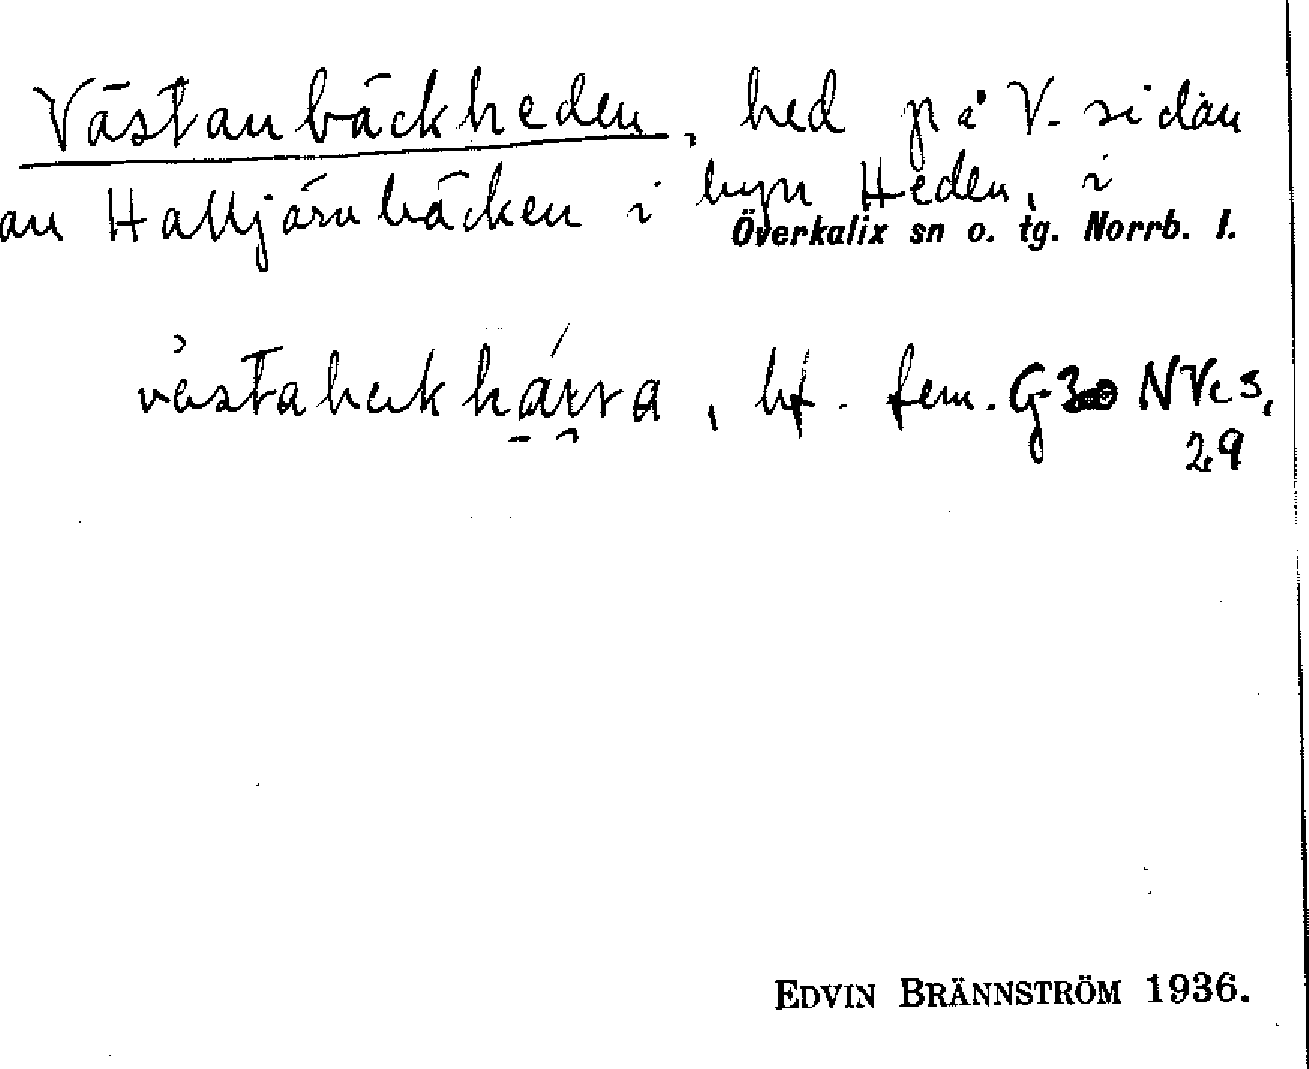 Västanbäckheden, hed på V. sidan
av Halltjärnbäcken i byn Heden, i
Överkalix sn o. tg. Norrb. l.
, bf. fem. G30 NVc 3,
29
EDVIN BRÄNNSTRÖM 1936.